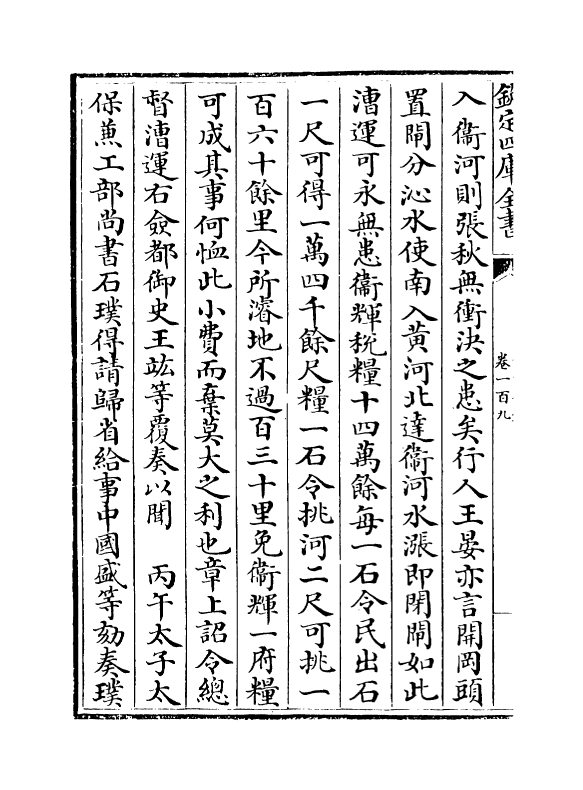 欽定四庫全書
卷一百九
入衞河則張秋無衝決之患矣行人王晏亦言開岡頭
置閘分沁水使南入黄河北達衞河水漲即閉閘如此
漕運可永無患衞輝税糧十四萬餘每一石令民出石
一尺可得一萬四千餘尺糧一石令挑河二尺可挑一
百六十餘里今所濬地不過百三十里免衞輝一府糧
可成其事何恤此小費而棄莫大之利也章上詔令總
督漕運右僉都御史王竑等覆奏以聞　丙午太子太
保蒹工部尚書石璞得請歸省給事中國盛等劾奏璞